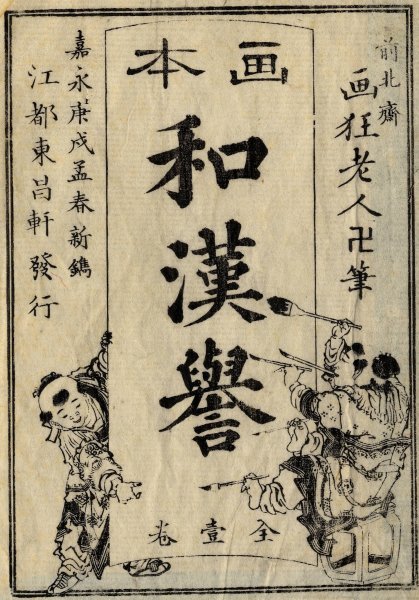 前北齋
画狂老人卍筆
画本
和漢譽
全壹卷
嘉永庚戌孟春新鐫
江都東昌軒發行